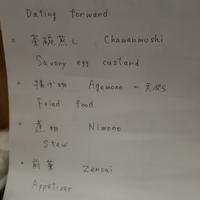 Dating forward
茶碗蒸し Chawanmushi
Savory egg custard
揚げ物 Agemono - 天ぷら
Fried food
煮物 Nimono
Stew
前菜 Zensai
Appetizer